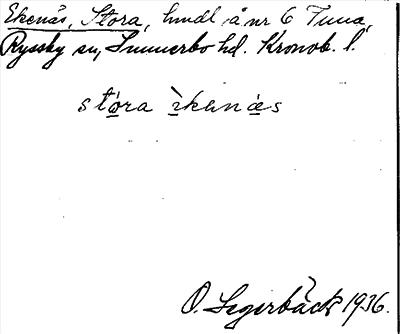 Ekenås, Stora, hmdl å nr 6 Tuna,
Ryssby sn, Sunnerbo hd. Kronob. l.
stóra ìkenás
O. Segerbäck 1936.